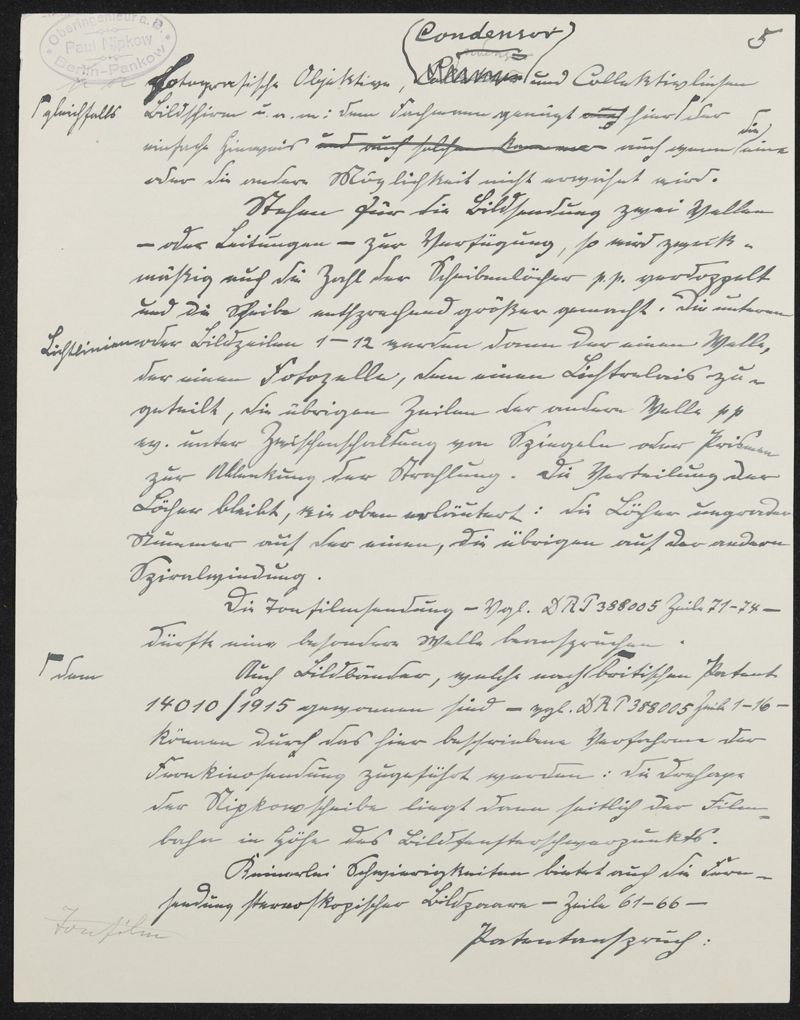 Oberingenieur a. D.
Paul Nipkow
Berlin-Pankow
5
(Condensor)
Fotografische Objektive, und Collektivlinsen
gleichfalls
Bildschirm u. a. m: dem Fachmann genügt hier der
einfache Hinweis und auch solche auch wenn die eine
oder die andere Möglichkeit nicht erwähnt wird.
Stehen für die Bildsendung zwei Wellen
– oder Leitungen – zur Verfügung, so wird zweck-
mäßig auch die Zahl der Scheibenlöcher p.p. verdoppelt
und die Scheibe entsprechend größer gemacht. Die unteren
Lichtlinien oder Bildzeilen 1–12 werden dann der einen Welle,
der einen Fotozelle, dem einen Lichtrelais zu-
geteilt, die übrigen Zeilen der andern Welle pp
ev. unter Zwischenschaltung von Spiegeln oder Prismen
zur Ablenkung der Strahlung. Die Verteilung der
Löcher bleibt, wie oben erläutert: die Löcher ungrader
Nummer auf der einen, die übrigen auf der andern
Spiralwindung.
Die Tonfilmsendung – Vgl. DRP 388005 Zeile 71–74 –
dürfte eine besondere Welle beanspruchen.
dem
Auch Bildbänder, welche nach britischen Patent
14010/1915 gewonnen sind – vgl. DRP 388005 Zeile 1–16 –
können durch das hier beschriebene Verfahren der
Fernkinosendung zugeführt werden: die Drehaxe
der Nipkowscheibe liegt dann seitlich der Film-
bahn in Höhe des Bildfensterschwerpunkts.
Keinerlei Schwierigkeiten bietet auch die Fern-
sendung stereoskopischer Bildpaare – Zeile 61–66 –
Tonfilm
Patentanspruch: